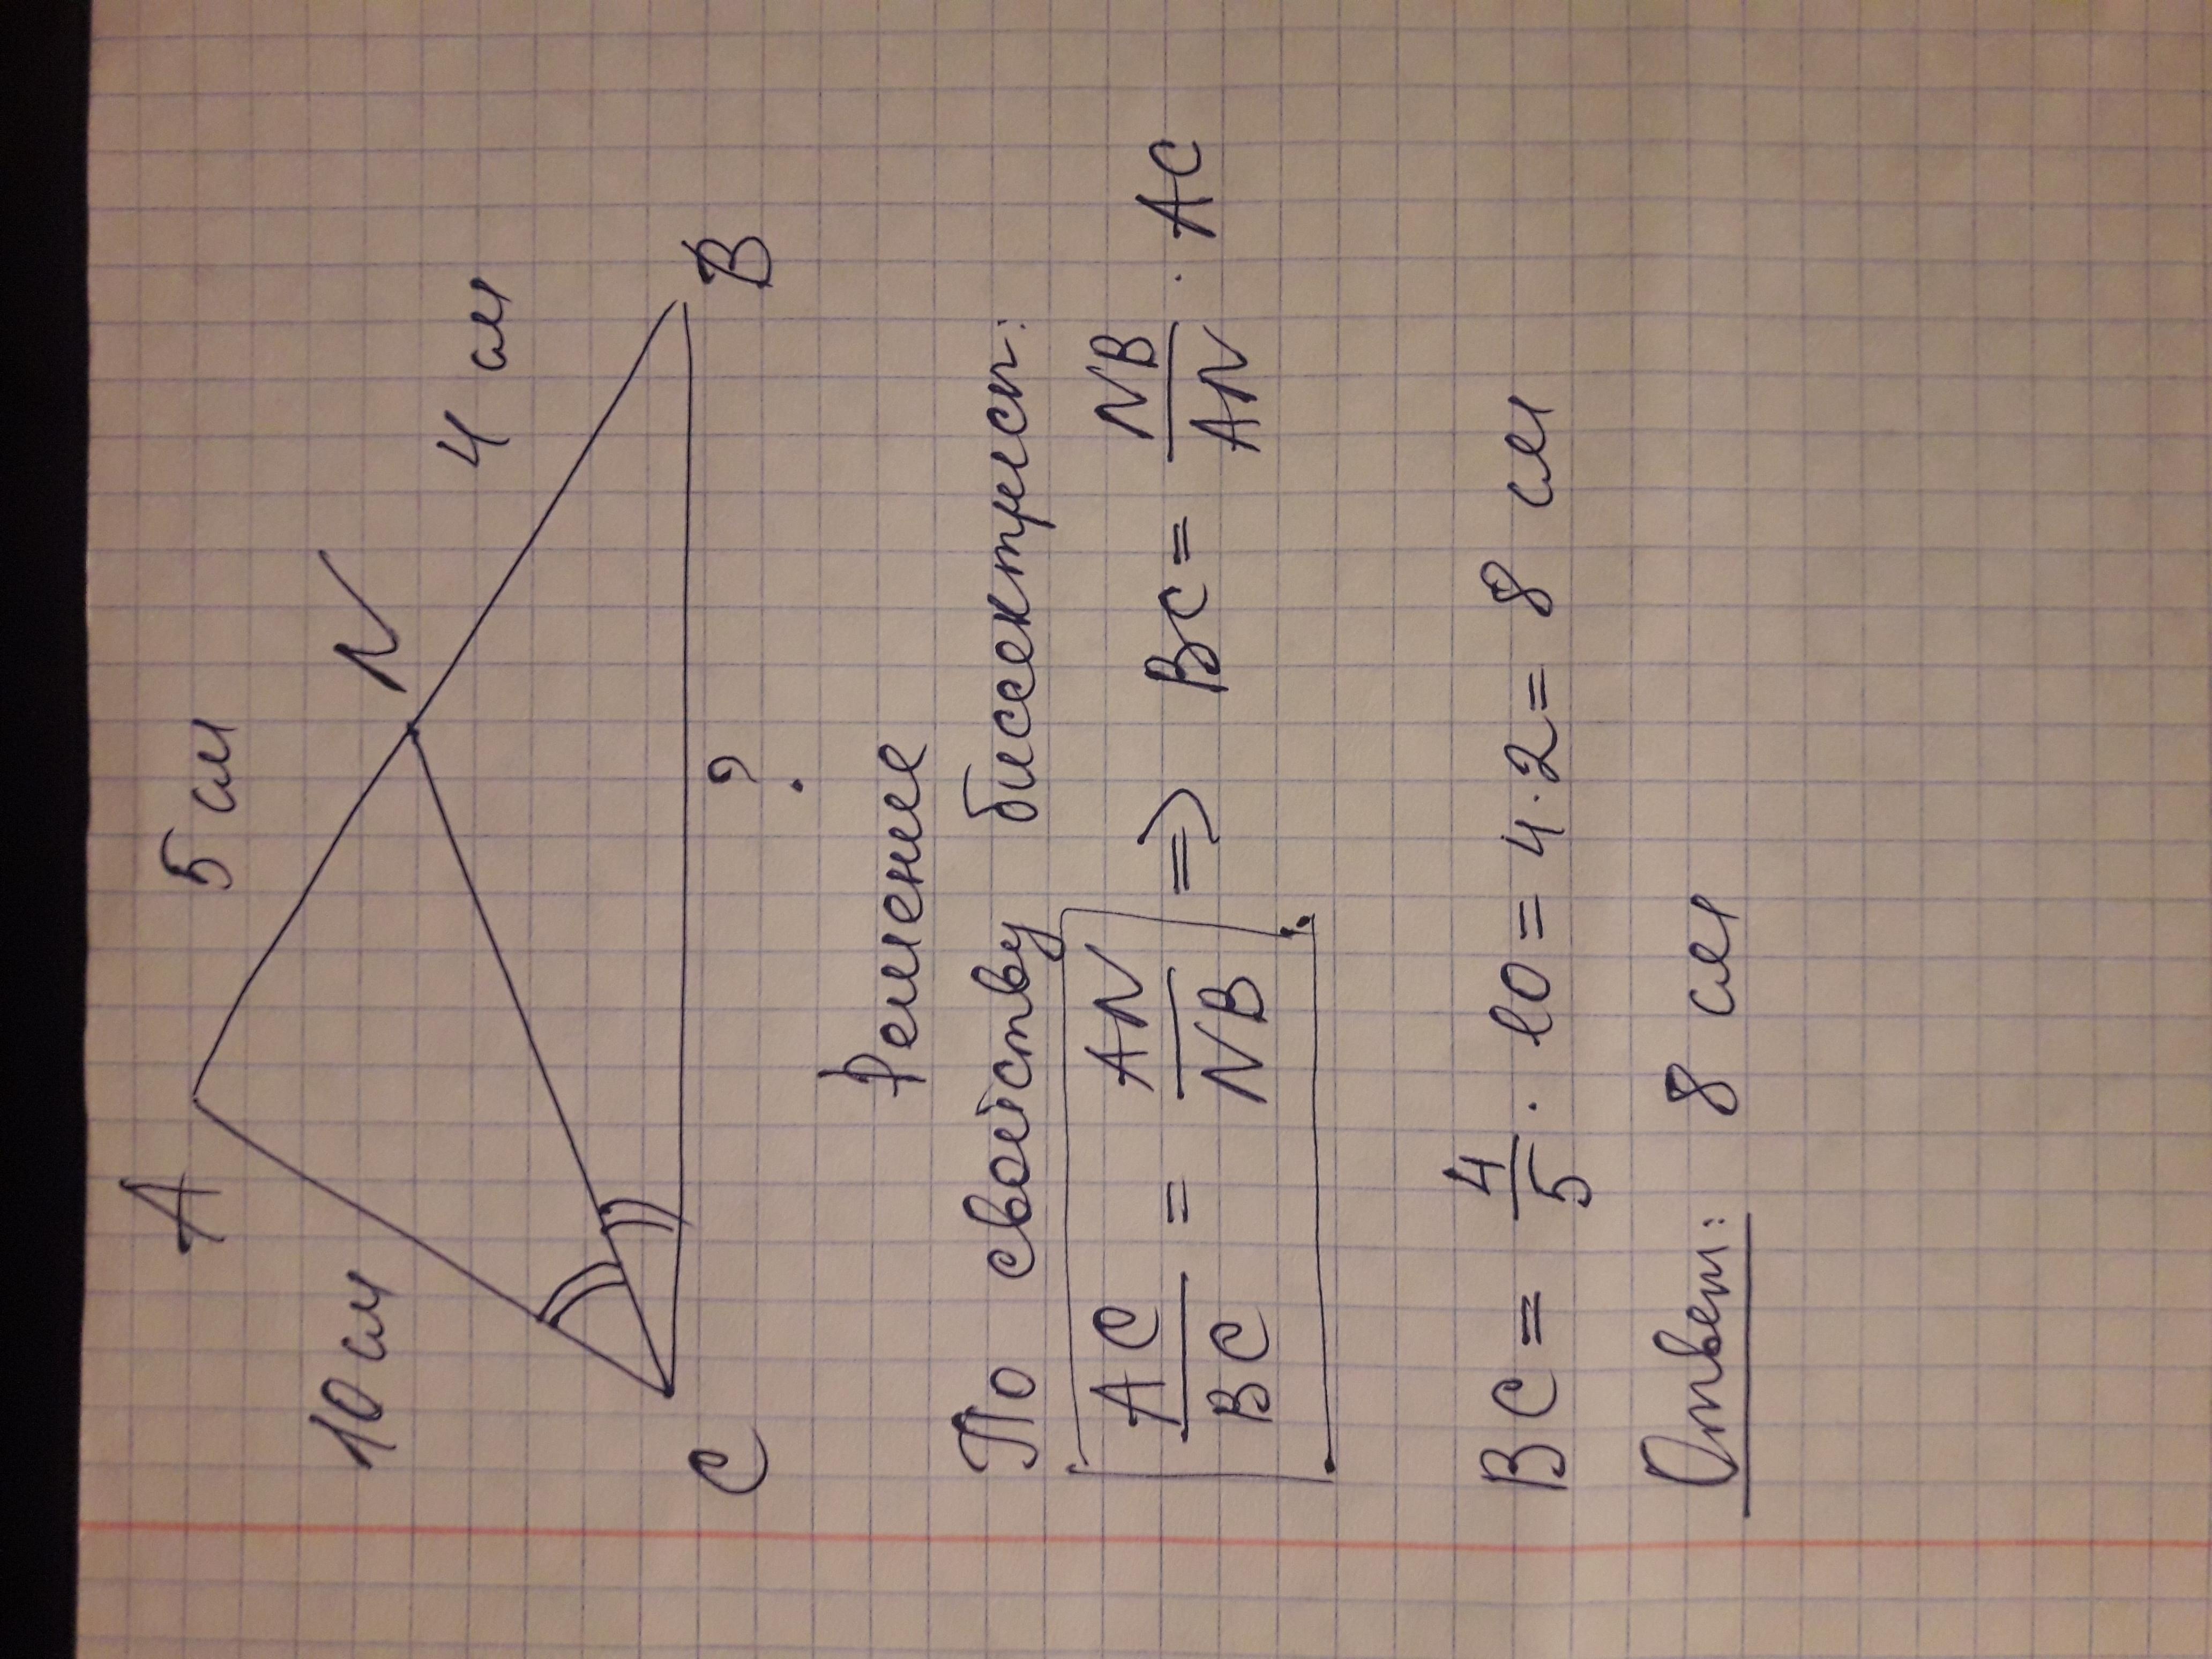 A
5 см
N
10 см
4 см
C
?
B
Решение
По свойству биссектрисы:
AC/BC = AN/NB => BC = NB/AN · AC
BC = 4/5 · 10 = 4 · 2 = 8 см
Ответ: 8 см